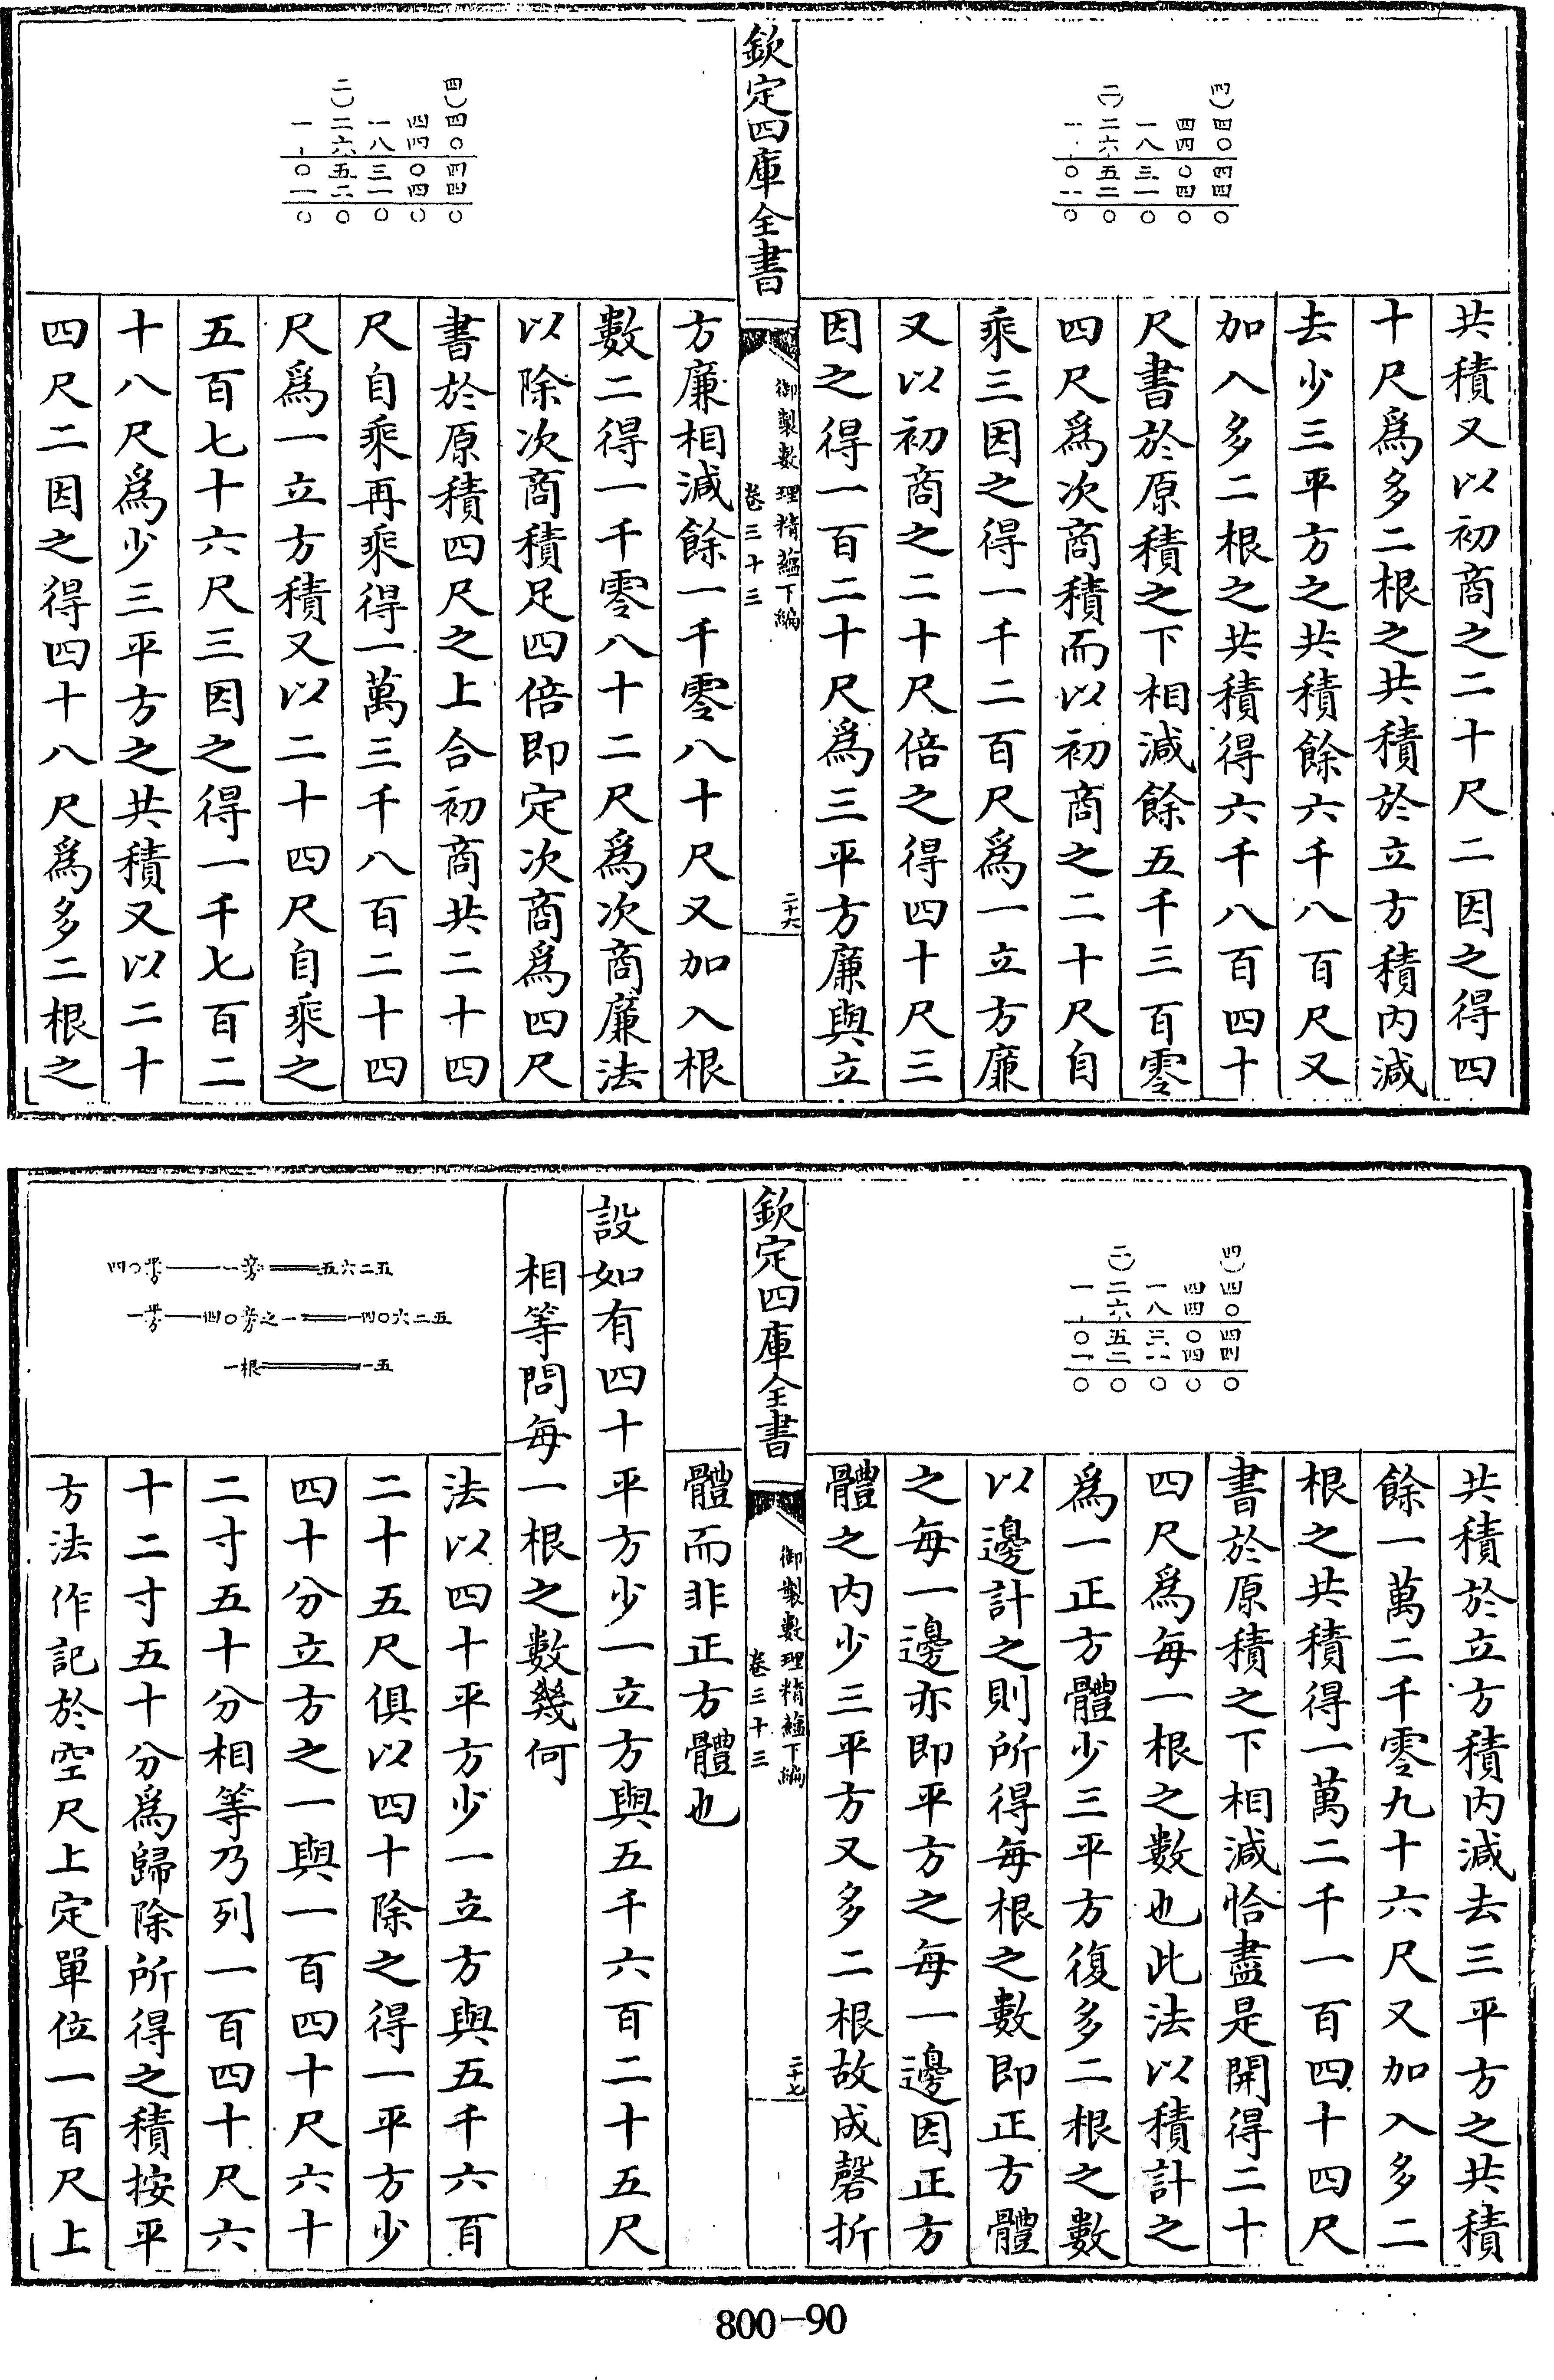 二) 四)
一二一四四
、六八四〇
〇五三〇四
一二一四四
〇〇〇〇〇
共積又以初商之二十尺二因之得四
十尺爲多二根之共積於立方積内減
去少三平方之共積餘六千八百尺又
加入多二根之共積得六千八百四十
尺書於原積之下相減餘五千三百零
四尺爲次商積而以初商之二十尺自
乘三因之得一千二百尺爲一立方廉
又以初商之二十尺倍之得四十尺三
因之得一百二十尺爲三平方廉與立
欽定四庫全書
御製數理精蘊下編
卷三十三
二十六
二) 四)
一二一四四
、六八四〇
〇五三〇四
一二一四四
〇〇〇〇〇
方廉相減餘一千零八十尺又加入根
數二得一千零八十二尺爲次商廉法
以除次商積足四倍即定次商爲四尺
書於原積四尺之上合初商共二十四
尺自乘再乘得一萬三千八百二十四
尺爲一立方積又以二十四尺自乘之
五百七十六尺三因之得一千七百二
十八尺爲少三平方之共積又以二十
四尺二因之得四十八尺爲多二根之
二) 四)
一二一四四
、六八四〇
〇五三〇四
一二一四四
〇〇〇〇〇
共積於立方積内減去三平方之共積
餘一萬二千零九十六尺又加入多二
根之共積得一萬二千一百四十四尺
書於原積之下相減恰盡是開得二十
四尺爲每一根之數也此法以積計之
爲一正方體少三平方復多二根之數
以邊計之則所得每根之數即正方體
之每一邊亦即平方之每一邊因正方
體之内少三平方又多二根故成磬折
欽定四庫全書
御製數理精蘊下編
卷三十三
二十七
體而非正方體也
設如有四十平方少一立方與五千六百二十五尺
相等問每一根之數幾何
四〇平方一立方五六二五
一平方四〇立方之一一四〇六二五
一根一五
法以四十平方少一立方與五千六百
二十五尺俱以四十除之得一平方少
四十分立方之一與一百四十尺六十
二寸五十分相等乃列一百四十尺六
十二寸五十分爲歸除所得之積按平
方法作記於空尺上定單位一百尺上
800-90